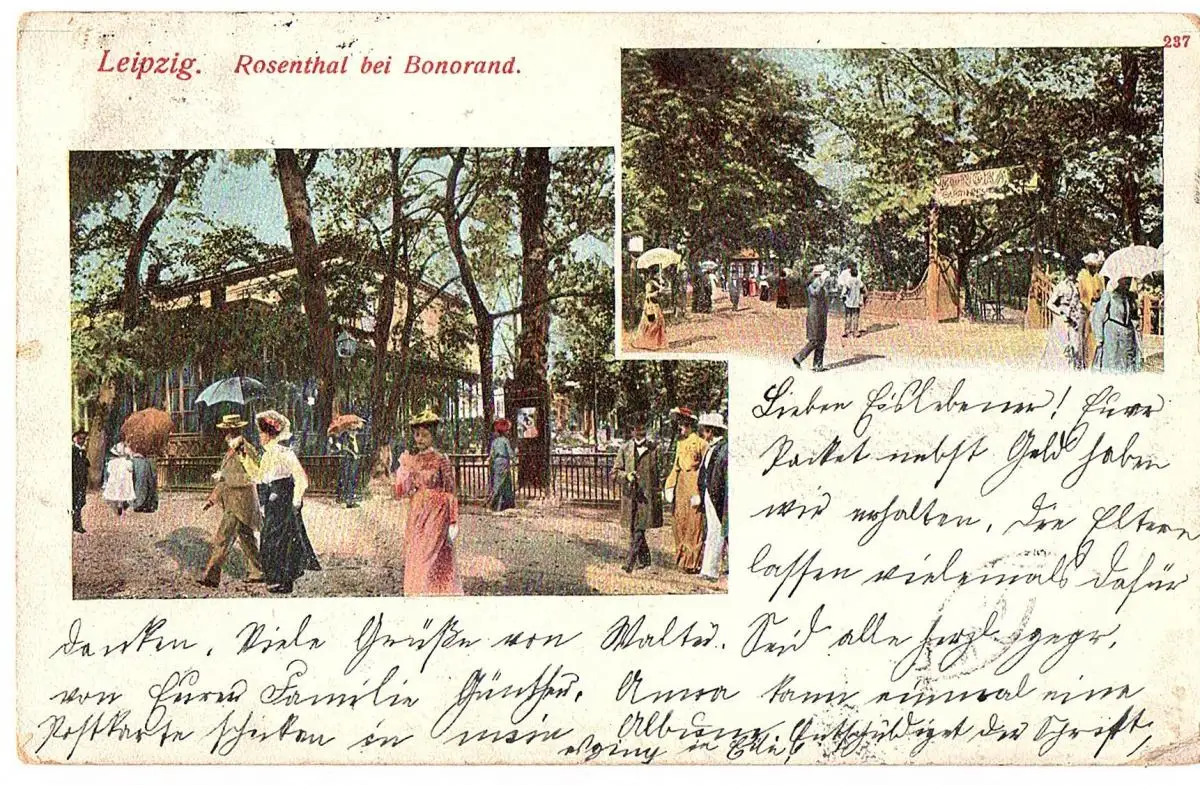 Leipzig. Rosenthal bei Bonorand.
237
Lieben Eislebener! Eure
Packet nebst Geld haben
wir erhalten. Die Eltern
lassen vielemals dafür
danken. Viele Grüße von Walter. Seid alle herzl. gegr.
von Eurer Familie Günther. kann einmal eine
Postkarte schicken in mein Album. Entschuldiget der Schrift,
es ging in